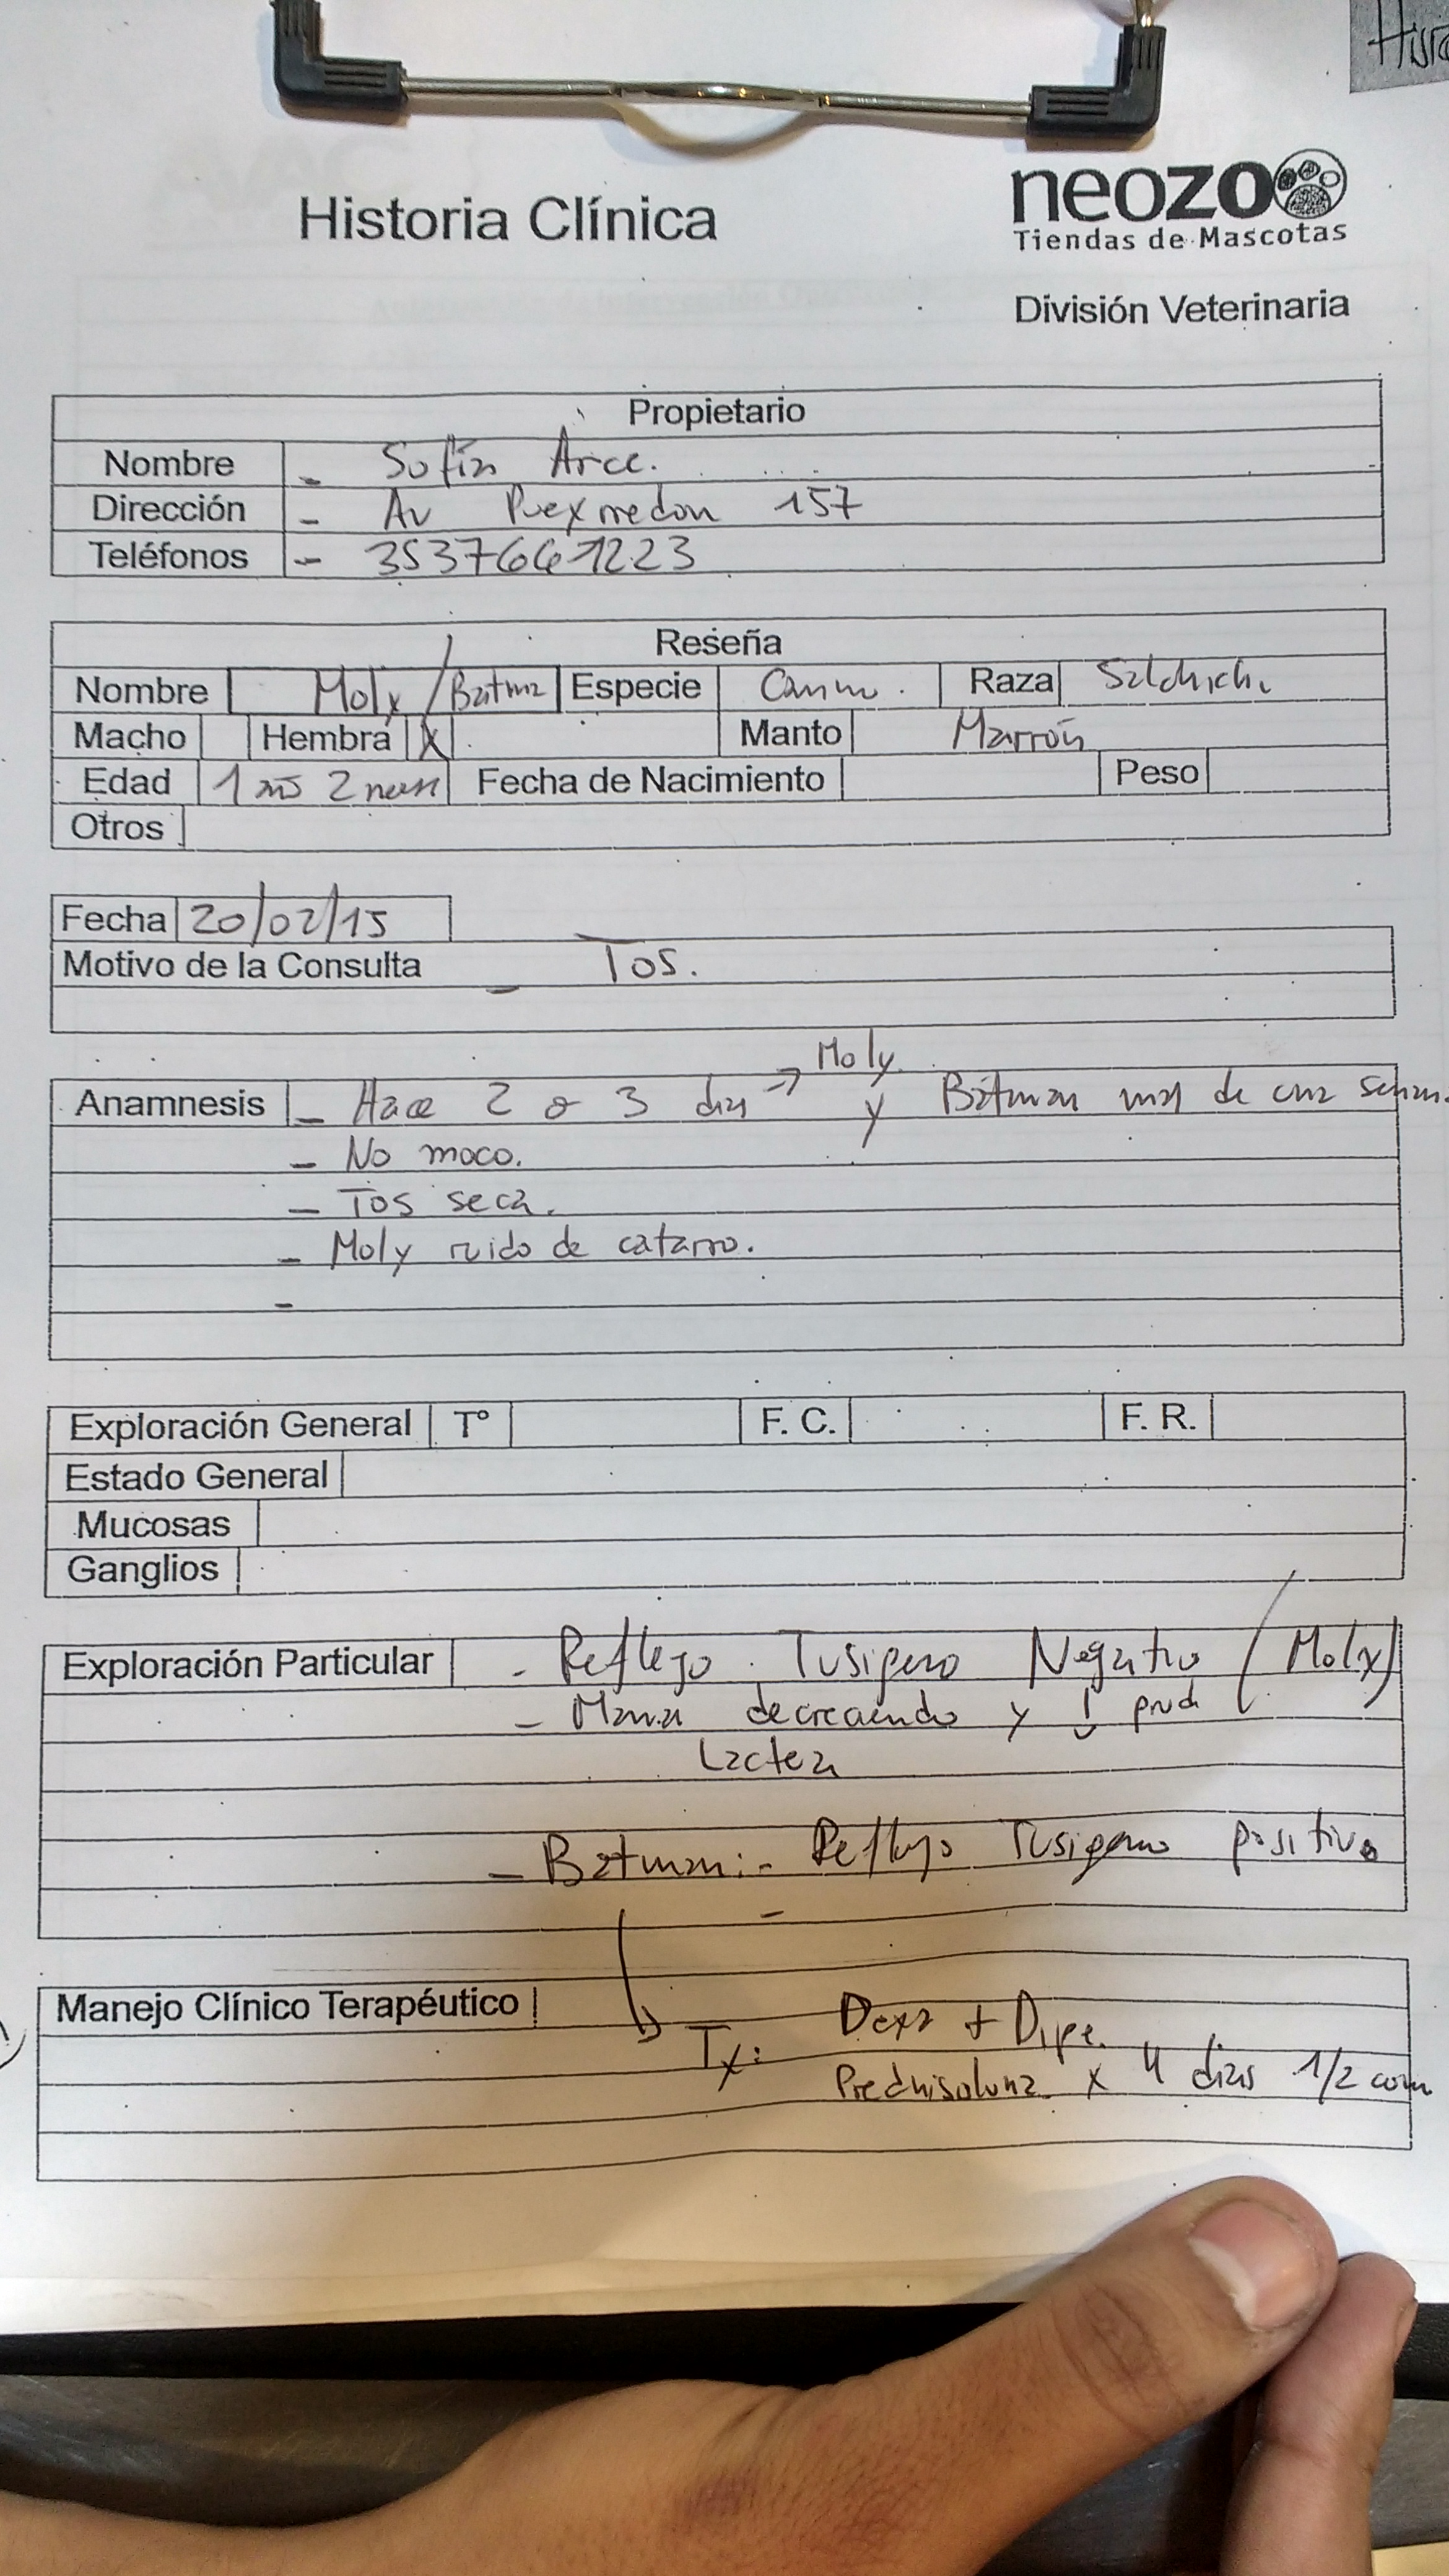 Hist
Historia Clínica
neozoo
Tiendas de Mascotas
División Veterinaria
Propietario
Nombre - Sofía Arce.
Dirección - Av Pueyrredon 157
Teléfonos - 35376641223
Reseña
Nombre Moly / Batman Especie Canino. Raza Salchicha
Macho Hembra X Manto Marrón
Edad 1 año 2 meses Fecha de Nacimiento Peso
Otros
Fecha 20/02/15
Motivo de la Consulta - Tos.
Anamnesis - Hace 2 o 3 dias → Moly y Batman mas de una seman.
- No moco.
- Tos seca.
- Moly ruido de catarro.
-
Exploración General T° F. C. F. R.
Estado General
Mucosas
Ganglios
Exploración Particular - Reflejo Tusigeno Negativo (Moly)
- Mamas decreciendo y ↓ prod
Lactea
- Batman: - Reflejo Tusigeno positivo
-
Manejo Clínico Terapéutico
Tx: Dexa + Dipe.
Prednisolona x 4 dias 1/2 com